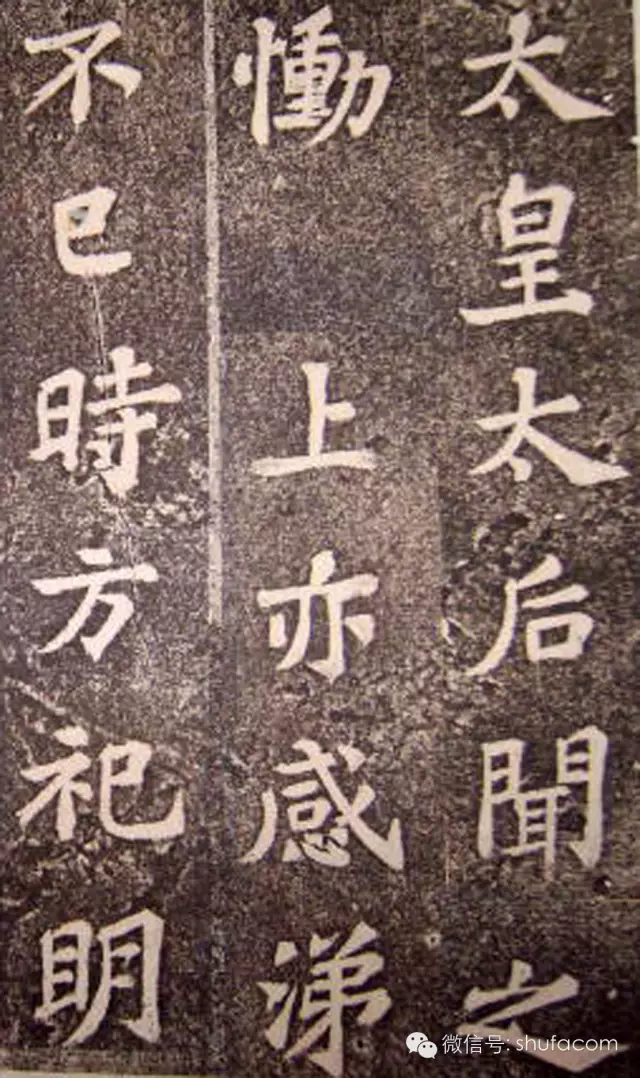 太皇太后聞之
慟上亦感涕
不已時方祀明
微信号: shufacom